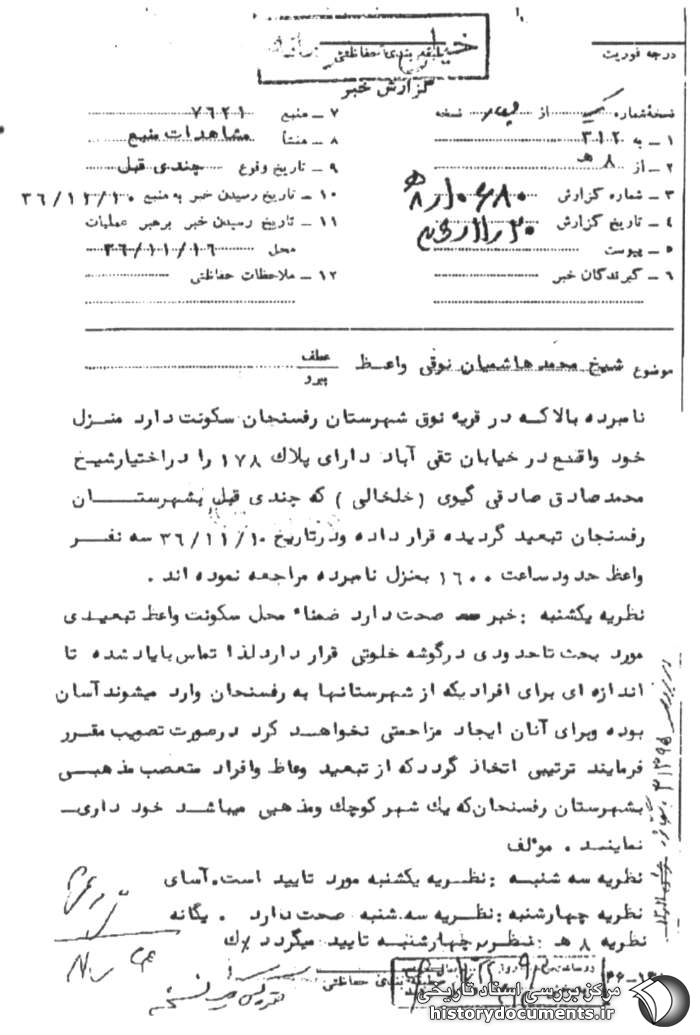 طبقه بندی حفاظتی
درجه فوریت
گزارش خبر
نسخه شماره یک از نسخه
۱ ــ به ۳۱۲
۲ ــ از ۸ هـ
۳ ــ شماره گزارش
۴ ــ تاریخ گزارش
۵ ــ پیوست
۶ ــ گیرندگان خبر
۷ ــ منبع ۷۶۲۱
۸ ــ منشأ مشاهدات منبع
۹ ــ تاریخ وقوع چندی قبل
۱۰ ــ تاریخ رسیدن خبر به منبع
۱۱ ــ تاریخ رسیدن خبر برهبر عملیات
محل ۳۶/۱۱/۱۶
۱۲ ــ ملاحظات حفاظتی
موضوع شیخ محمد هاشمیان نوقی واعظ عطف
پیرو
نامبرده بالاکه در قریه نوق شهرستان رفسنجان سکونت دارد منزل
خود واقع در خیابان تقی آباد دارای پلاک ۱۷۸ را دراختیار شیخ
محمد صادق صادقی گیوی (خلخالی) که چندی قبل بشهرستان
رفسنجان تبعید گردیده قرار داده و در تاریخ ۳۶/۱۱/۱۰ سه نفر
واعظ حدود ساعت ۱۶۰۰ بمنزل نامبرده مراجعه نموده اند .
نظریه یکشنبه : خبر صحت دارد ضمناً محل سکونت واعظ تبعیدی
مورد بحث تا حدودی در گوشه خلوتی قرار دارد لذا تماس با یاد شده تا
اندازه ای برای افرادیکه از شهرستانها به رفسنجان وارد میشوند آسان
بوده وبرای آنان ایجاد مزاحمتی نخواهد کرد در صورت تصویب مقرر
فرمایند ترتیبی اتخاذ گردد که از تبعید وعاظ وافراد متعصب مذهبی
بشهرستان رفسنجان که یک شهر کوچک ومذهبی میباشد خود داری
نمایند . مؤلف
نظریه سه شنبه : نظریه یکشنبه مورد تایید است. آسای
نظریه چهارشنبه : نظریه سه شنبه صحت دارد . یگانه
نظریه ۸ هـ : نظریه چهارشنبه تایید میگردد
طبقه بندی حفاظتی
مرکز بررسی اسناد تاریخی
historydocuments.ir